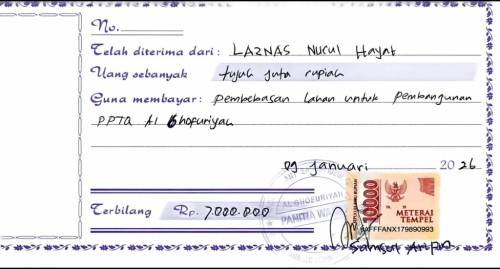 No.
Telah diterima dari : LAZNAS Nurul Hayat
Uang sebanyak tujuh juta rupiah
Guna membayar: pembebasan Lahan untuk pembangunan
PPTQ Al Ghofuriyah
januari 2026
AL GHOFURIYAH
PANITIA
10000
METERAI
TEMPEL
FFFANX179890993
Terbilang Rp. 7.000.000
Samsul Arifin